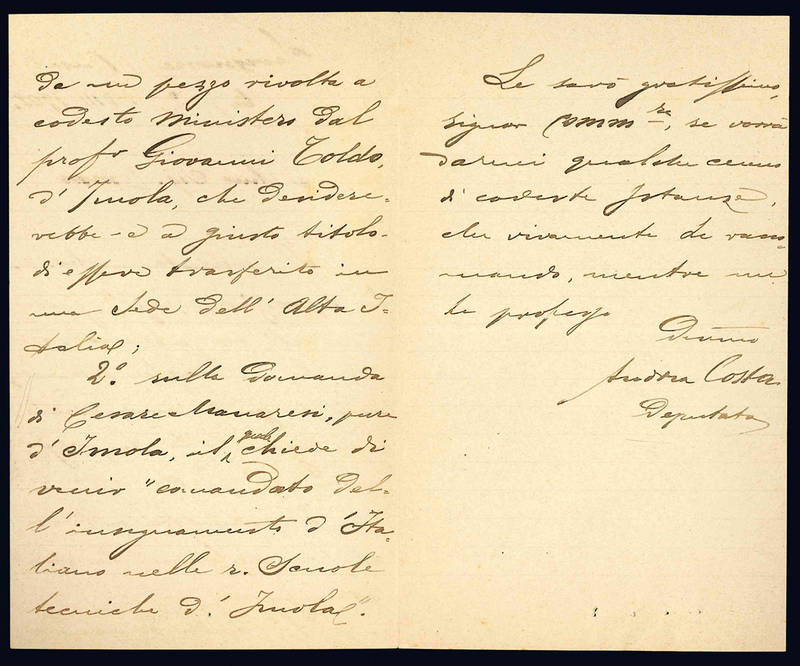 da un pezzo rivolta a
codesto Ministero dal
prof.r Giovanni Toldo,
d' Imola, che desidere-
rebbe - e a giusto titolo -
di essere trasferito in
una sede dell' Alta I-
talia;
2.o sulla domanda
di Cesare Manaresi, pure
d' Imola, il quale chiede di
venir "comandato del-
l' insegnamento d' Ita-
liano nelle r. Scuole
tecniche d' Imola".
Le sarò gratissimo,
signor Comm.re, se vorrà
darmi qualche cenno
di codeste Istanze,
che vivamente le racco-
mando, mentre mi
Le professo
Dev.mo
Andrea Costa
Deputato